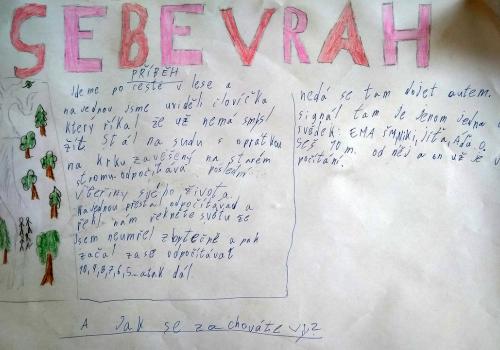 SEBEVRAH
PŘÍBĚH
Jdeme po cestě v lese a
najednou jsme uviděli človíčka
který říkal že už nemá smysl
žít. Stál na sudu s oprátkou
na krku zavěšený na starém
stromu-odpočítává poslední
vteřiny svého života.
Najednou přestal odpočítávad a
řekl nám řekněte světu že
jsem neumřel zbytečně a pak
začal zase odpočítávat
10,9,8,7,6,5...atak dál.
nedá se tam dojet autem.
signál tam je jenom jedna
svědek: EMA
10 m. od něj a on už je v
počítání.
A Jak se zachováte vy?